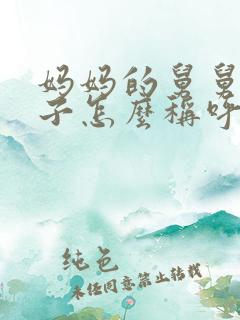 妈妈的舅舅
子怎麼稱呼
纯色
未任同意禁止转载